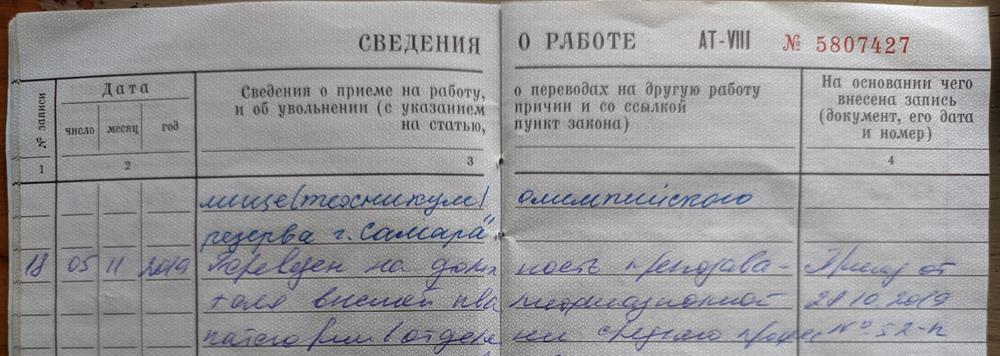 СВЕДЕНИЯ О РАБОТЕ АТ-VIII № 5807427
№ записи
Дата
число месяц год
Сведения о приеме на работу, о переводах на другую работу
и об увольнении (с указанием причин и со ссылкой
на статью, пункт закона)
На основании чего
внесена запись
(документ, его дата
и номер)
1 2 3 4
лище(техникум) олимпийского
резерва г. Самара"
18 05 11 2019 Переведен на долж ность преподава- Приказ от
теля высшей ква лификационной 29.10.2019
категории в отделе нии среднего профес № 52-п